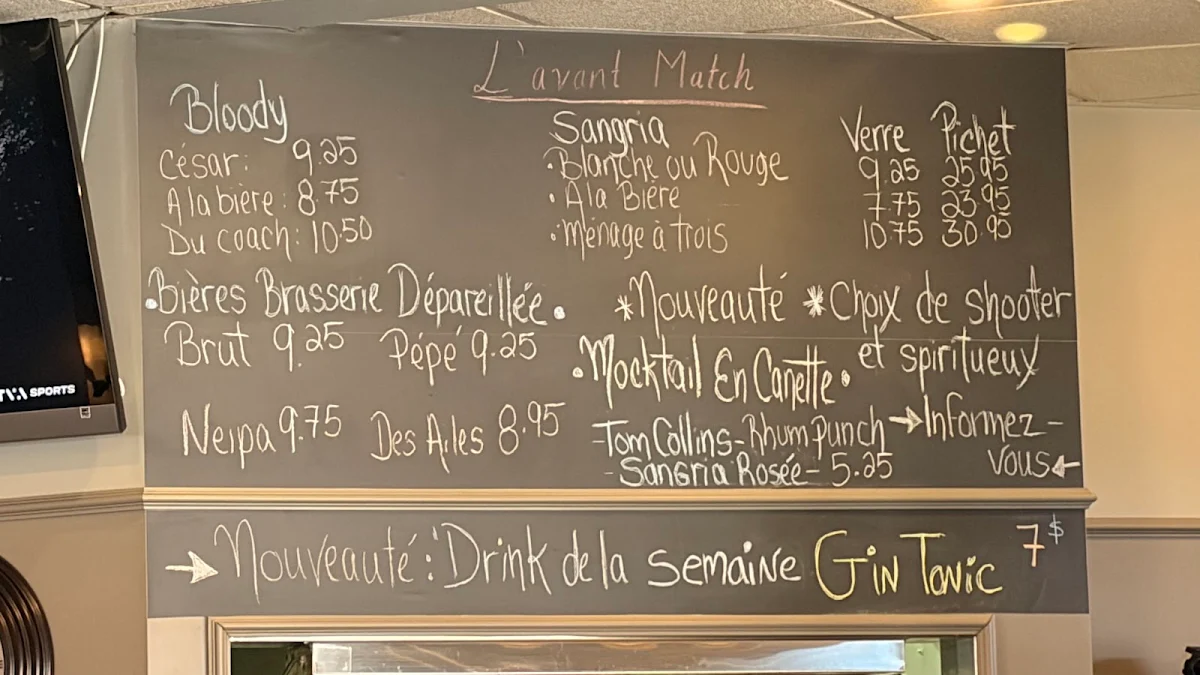 L'avant Match
Bloody
César: 9.25
A la bière: 8.75
Du coach: 10.50
Sangria Verre Pichet
• Blanche ou Rouge 9.25 25.95
• Àla Bière 7.75 23.95
• Ménage à trois 10.75 30.95
• Bières Brasserie Dépareillée •
Brut 9.25 Pépé 9.25
Neipa 9.75 Des Ailes 8.95
*Nouveauté *
• Mocktail En Canette •
- Tom Collins - Rhum Punch
- Sangria Rosée - 5.25
Choix de shooter
et spiritueux
→ Informez-
vous ←
→ Nouveauté: Drink de la semaine Gin Tonic 7$
TVA SPORTS